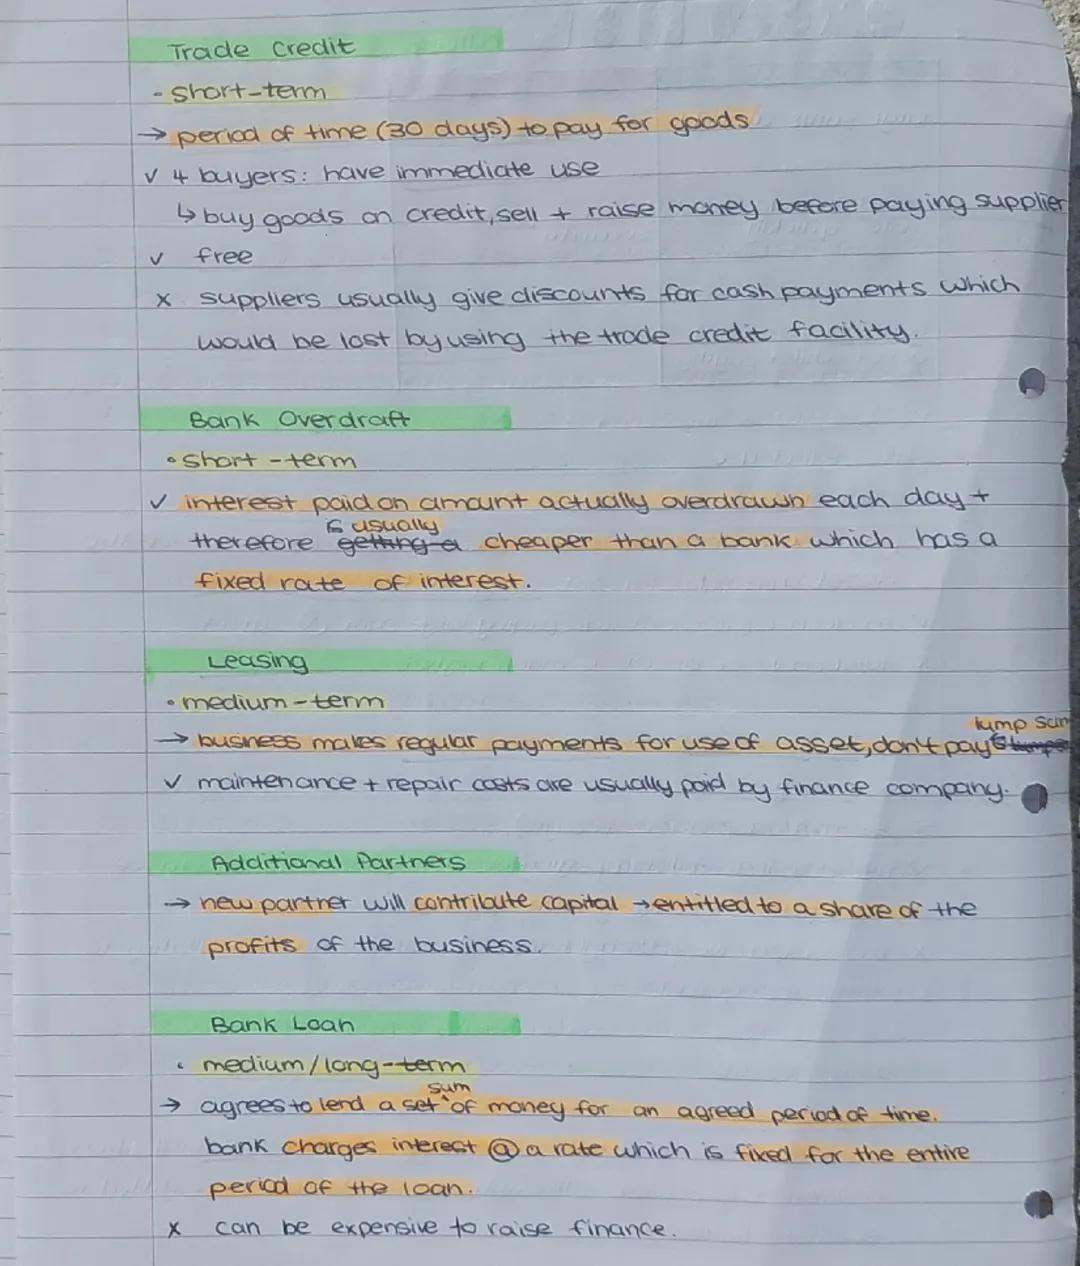 Trade Credit
- short-term
→ period of time (30 days) to pay for goods
✓ 4 buyers: have immediate use
↳ buy goods on credit, sell + raise money before paying supplier
✓ free
x suppliers usually give discounts for cash payments which
would be lost by using the trade credit facility.
Bank Overdraft
• short-term
✓ interest paid on amount actually overdrawn each day +
is usually
therefore getting a cheaper than a bank which has a
fixed rate of interest.
Leasing
• medium-term
lump sum
→ business makes regular payments for use of asset, don't pay
✓ maintenance + repair costs are usually paid by finance company.
Additional Partners
→ new partner will contribute capital → entitled to a share of the
profits of the business.
Bank Loan
• medium/long-term
sum
→ agrees to lend a set ^ of money for an agreed period of time.
bank charges interest @ a rate which is fixed for the entire
period of the loan.
x can be expensive to raise finance.